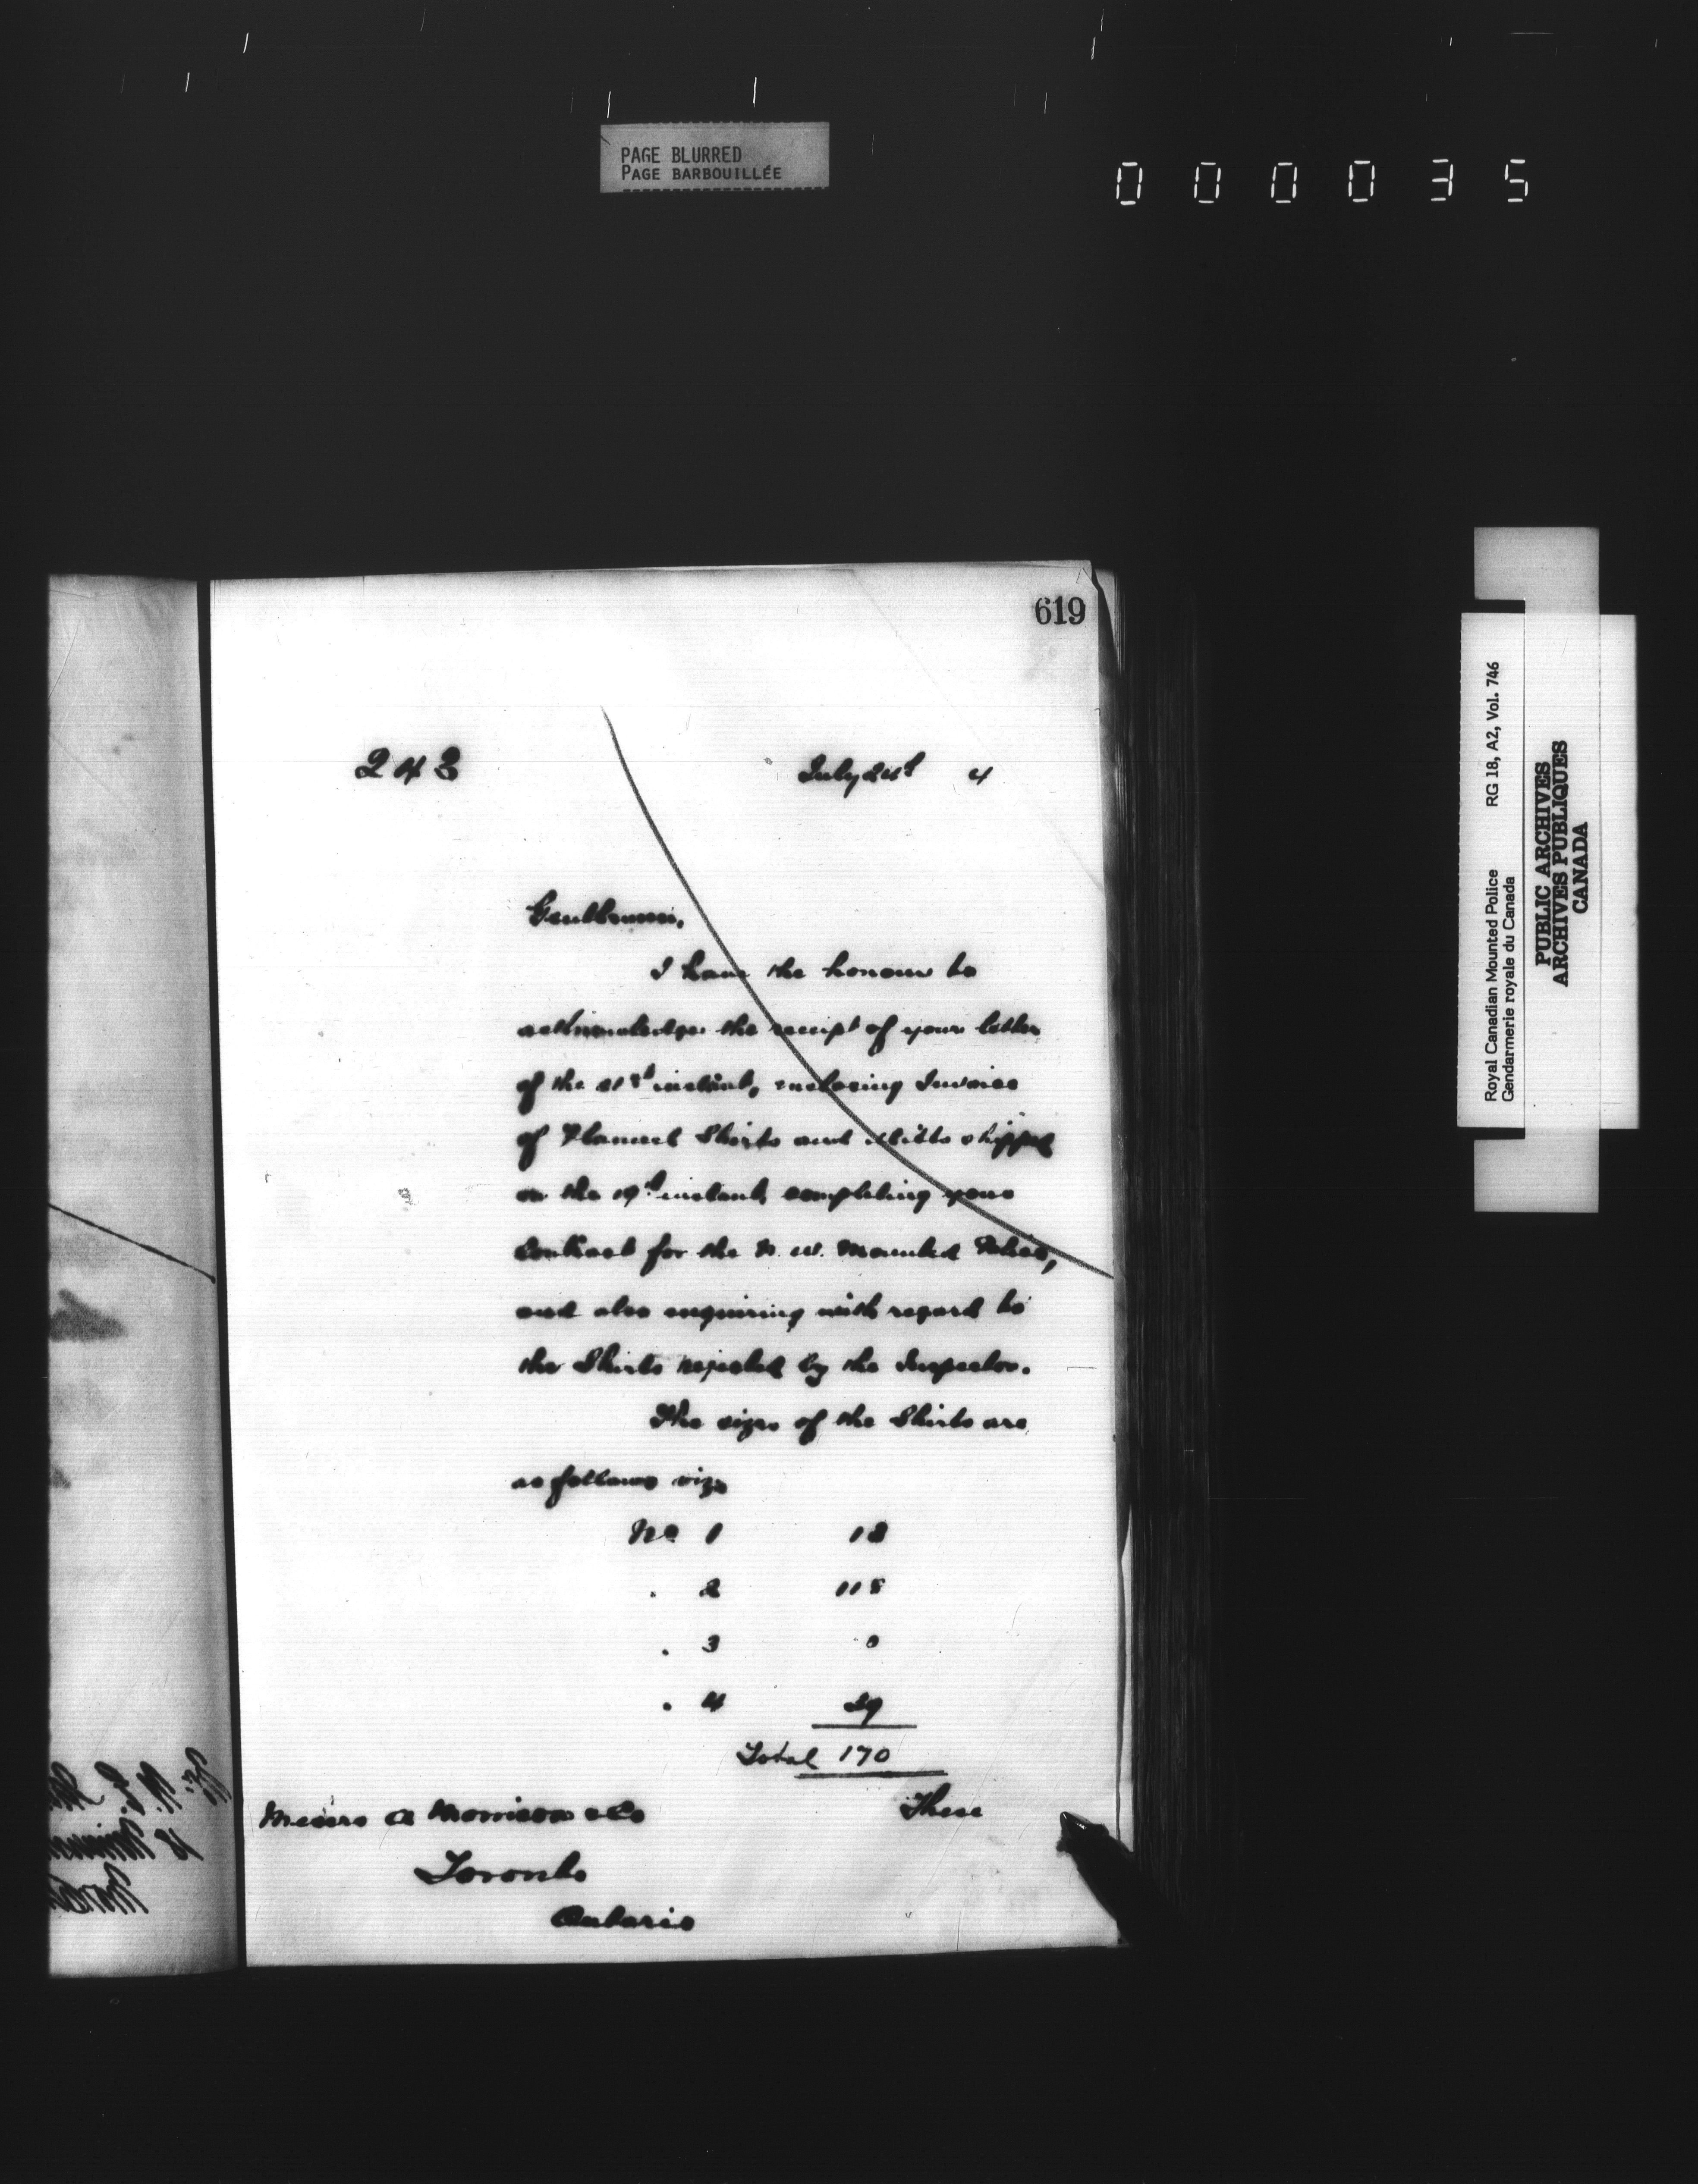 PAGE BLURRED
PAGE BARBOUILLÉE
000035
619
243 July 24th 4
Gentlemen,
I have the honour to
acknowledge the receipt of your letter
of the 21st instant, enclosing Invoice
of Flannel Shirts and Mitts shipped
on the 19th instant, completing your
Contract for the N. W. Mounted Police,
and also enquiring with regard to
the Shirts rejected by the Inspector.
The sizes of the Shirts are
as follows viz.
No 1
. 2
. 3
. 4
Total 170
These
Messrs A Morrison & Co
Toronto
Ontario
Royal Canadian Mounted Police RG 18, A2, Vol. 746
Gendarmerie royale du Canada
PUBLIC ARCHIVES
ARCHIVES PUBLIQUES
CANADA